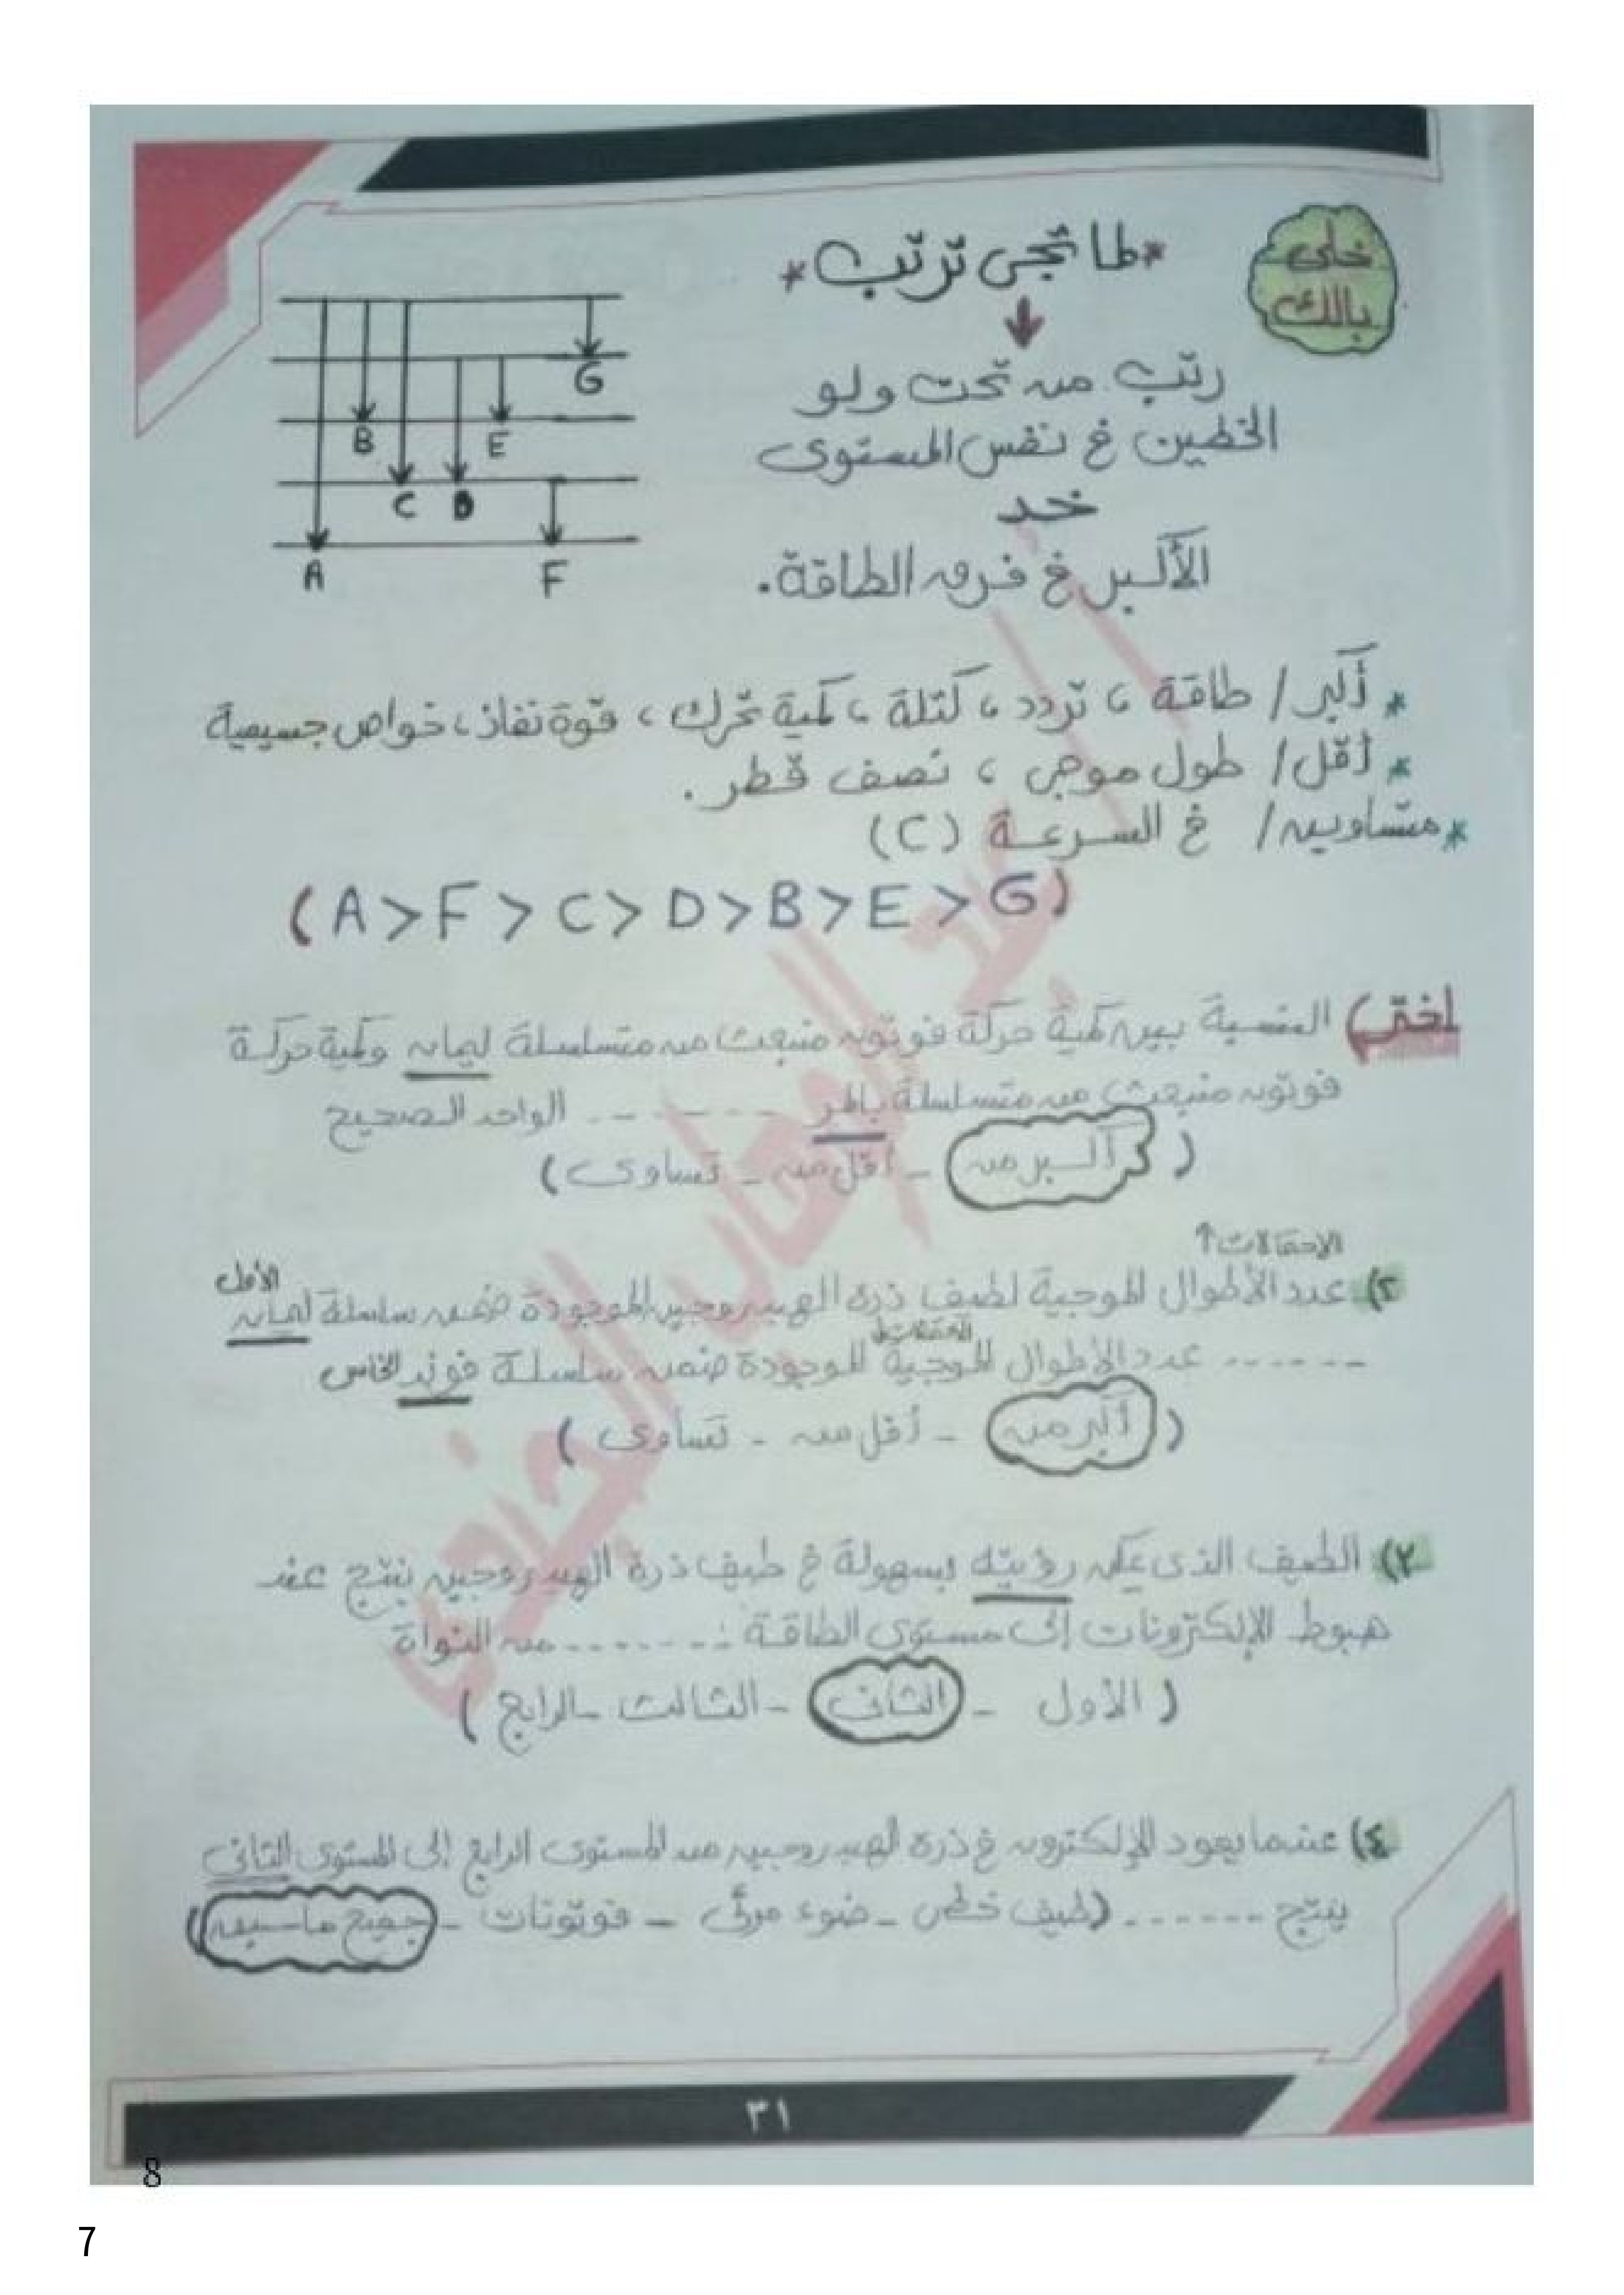 خلى
بالك
*لما تجى ترتب*
رتب من تحت ولو
الخطين في نفس المستوى
خد
الأكبر في فرق الطاقة.
G
B
E
C
D
A
F
* أكبر/ طاقة، تردد، كتلة، كمية تحرك، قوة نفاذ، خواص جسيمية
* أقل/ طول موجى، نصف قطر.
* متساويين/ في السرعة (C)
(A > F > C > D > B > E > G)
اختر) النسبة بين كمية حركة فوتون منبعث من متسلسلة ليمان وكمية حركة
فوتون منبعث من متسلسلة بالمر ------ الواحد الصحيح
(أكبر من - أقل من - تساوى)
الاحتمالات↑
٢) عدد الأطوال الموجية لطيف ذرة الهيدروجين الموجودة ضمن سلسلة ليمان الأول
------ عدد الأطوال الموجية الموجودة ضمن سلسلة فوند الخامس
(أكبر من - أقل من - تساوى)
٣) الطيف الذى يمكن رؤيته بسهولة في طيف ذرة الهيدروجين ينتج عند
هبوط الإلكترونات إلى مستوى الطاقة ------ من النواة
(الأول - الثانى - الثالث - الرابع)
٤) عندما يعود الإلكترون في ذرة الهيدروجين من المستوى الرابع إلى المستوى الثانى
ينتج ------ (طيف خطى - ضوء مرئى - فوتونات - جميع ما سبق)
عبد الرحمن
٣١
8
7